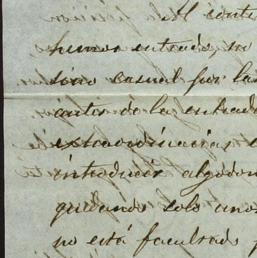 El conti
humos entrado, no
sino casual por la
antes de la entrada
extraordinarias, e
introducir algodon
quedando solo unos
no está facultado p